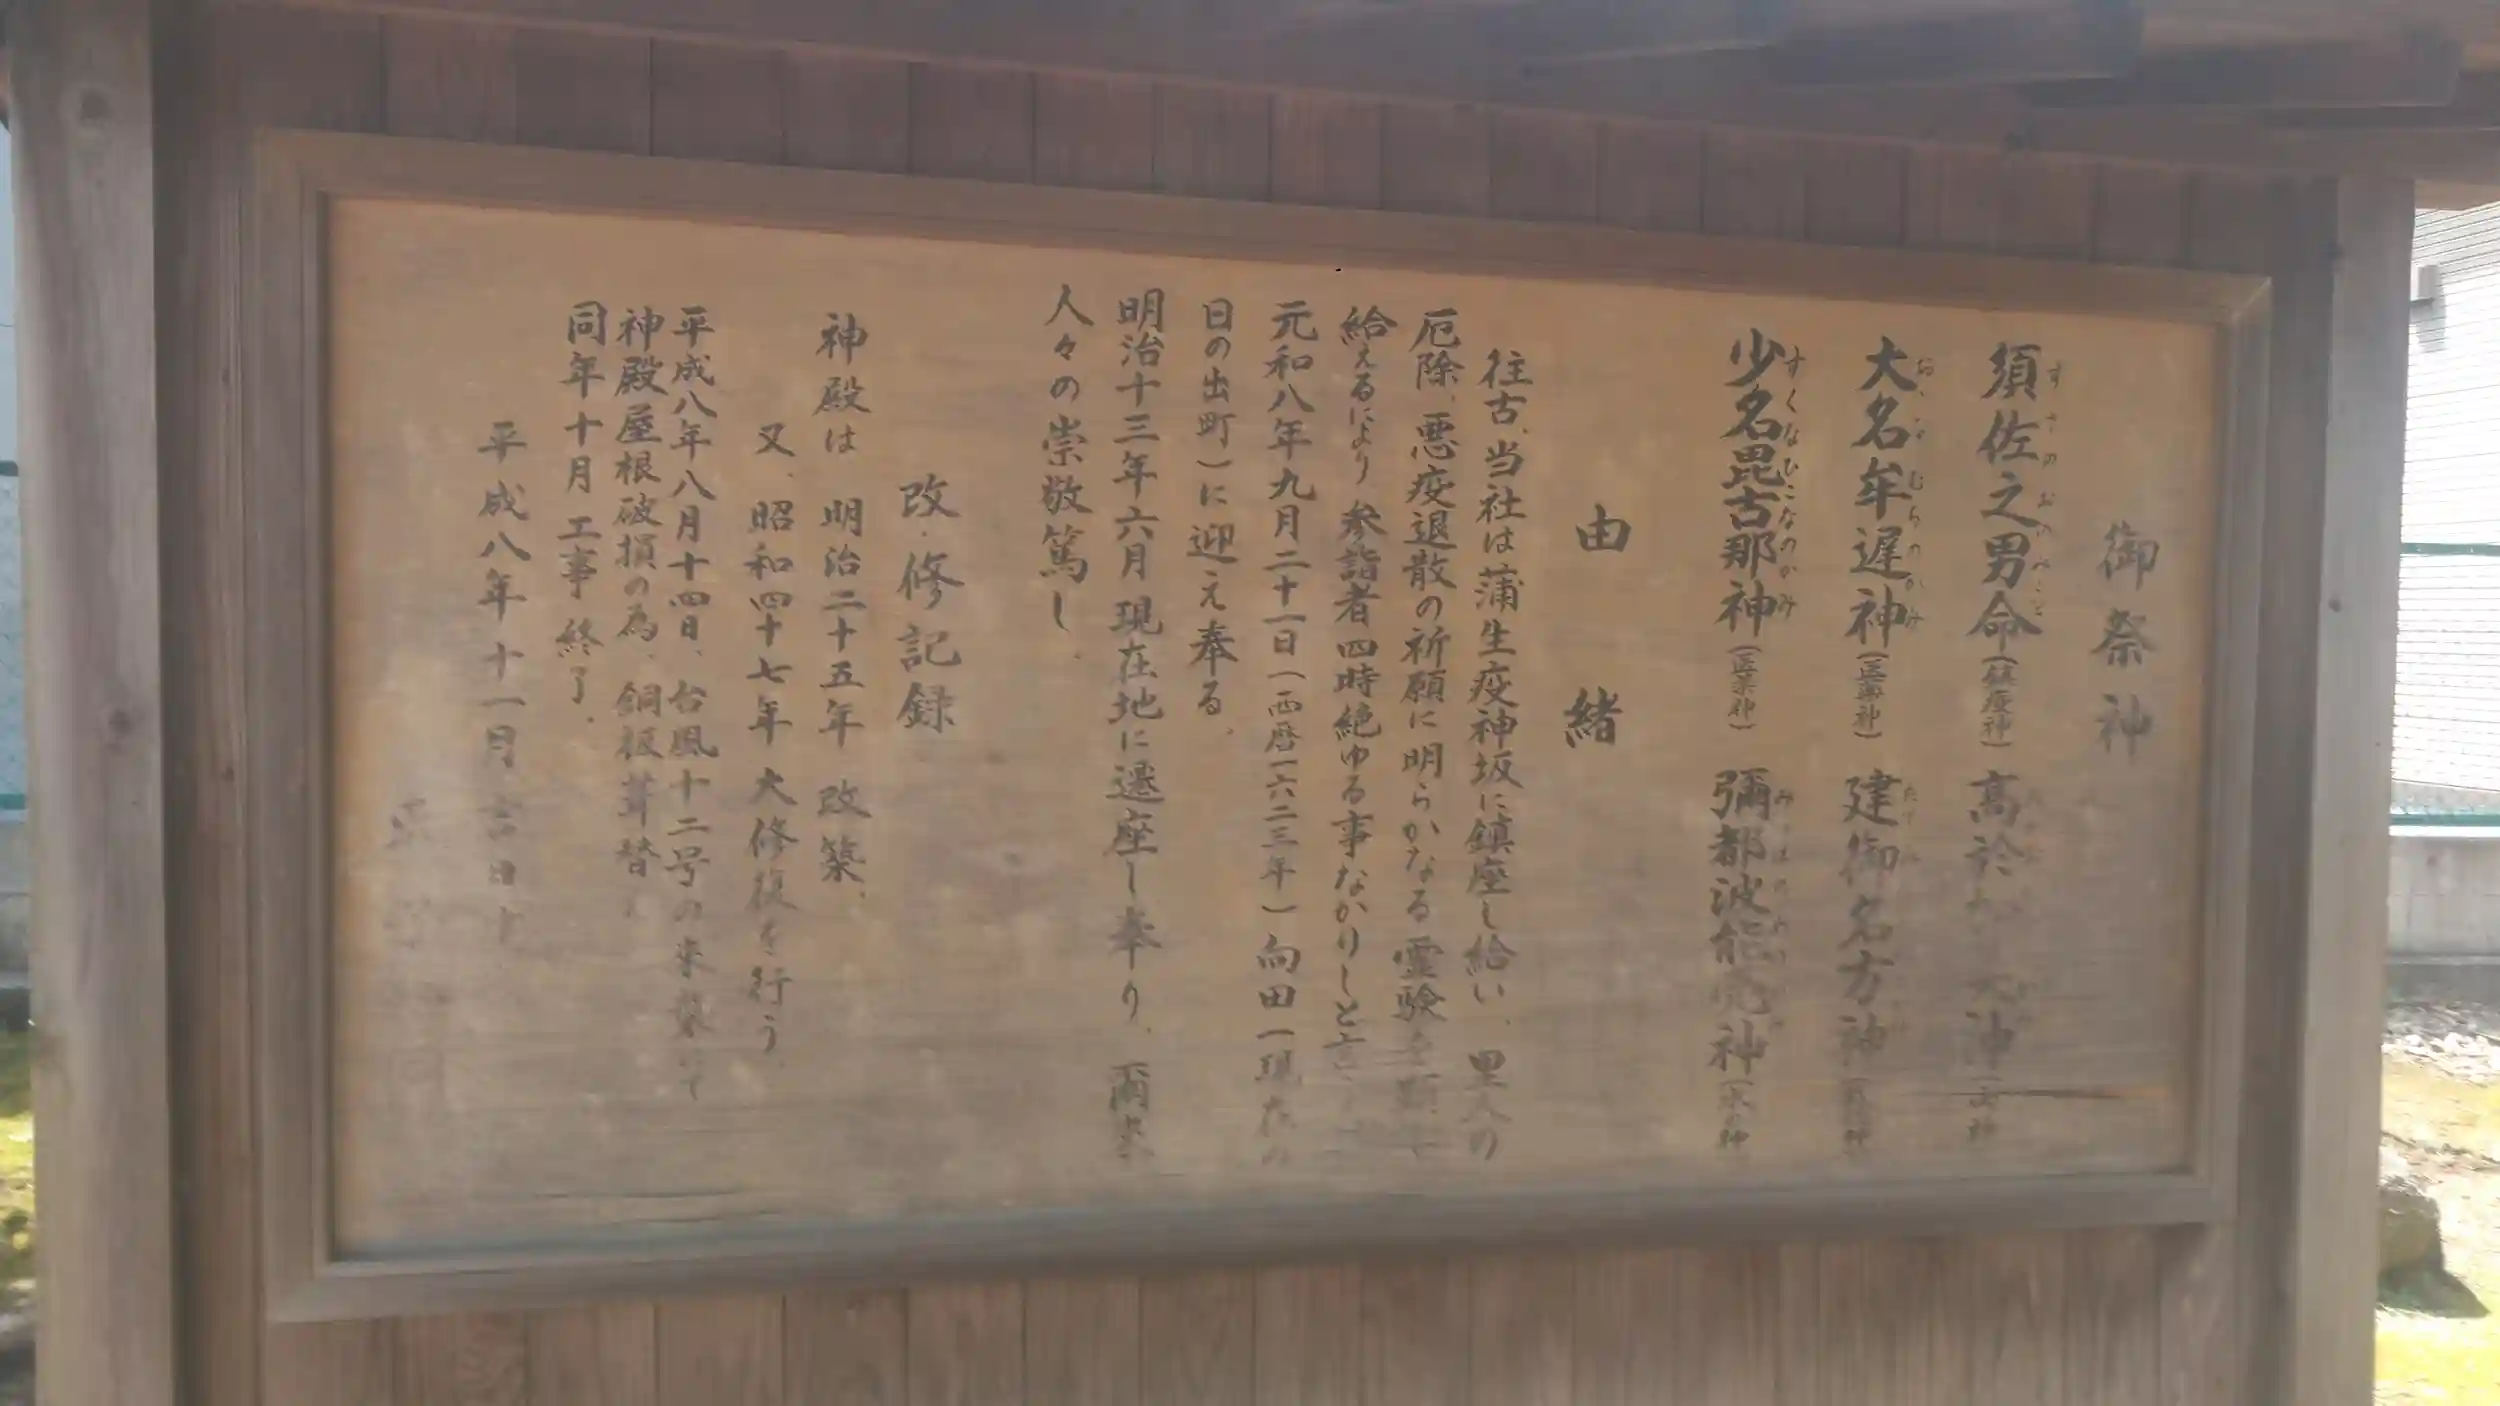 御祭神
須佐之男命（鎮疫神）高於 神
すさのおのみこと
大名牟遅神（医薬神）建御名方神
おおなむちのかみ
少名毘古那神（医薬神）彌都波能売神（水神
すくなひこなのかみ みつはのめのかみ
由緒
往古、当社は蒲生疫神坂に鎮座し給い、里人の
厄除、悪疫退散の祈願に明らかなる霊験を顕
給えるにより参詣者四時絶ゆる事なかりしと言
元和八年九月二十一日（西暦一六二三年）向田（現在の
日の出町）に迎え奉る。
明治十三年六月現在地に遷座し奉り、爾来
人々の崇敬篤し、
改・修記録
神殿は 明治二十五年 改築、
又、昭和四十七年 大修復を行う
平成八年八月十四日、台風十二号の来襲にて
神殿屋根破損の為、銅板葺替え
同年十月 工事終了。
平成八年十一月 吉日